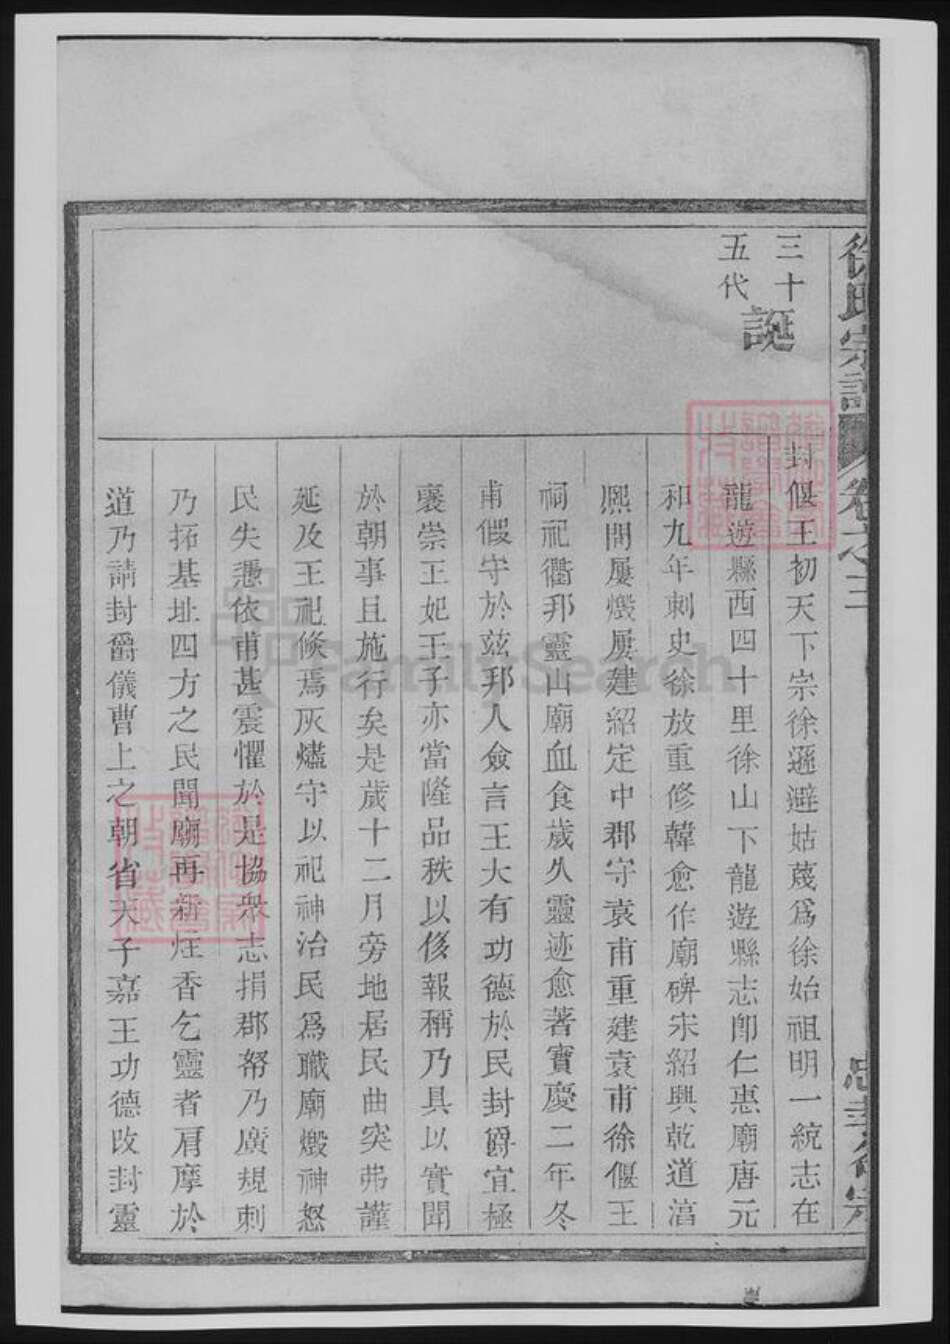 徐氏宗譜 卷之三
三十五代
誕
封偃王初天下宗徐遜避姑蔑爲徐始祖明一統志在
龍遊縣西四十里徐山下龍遊縣志卽仁惠廟唐元
和九年刺史徐放重修韓愈作廟碑宋紹興乾道淳
熈間屢燬屢建紹定中郡守袁甫重建袁甫徐偃王
祠祀衢邦靈山廟血食歲久靈迹愈著寳慶二年冬
甫假守於玆邦人僉言王大有功德於民封爵宜極
襃崇王妃王子亦當隆品秩以侈報稱乃具以實聞
於朝事且施行矣是歲十二月旁地居民曲突弗謹
延及王祀倐焉灰燼守以祀神治民爲職廟燬神怒
民失憑依甫甚震懼於是協衆志捐郡帑乃廣規刺
乃拓基址四方之民聞廟再新炷香乞靈者肩摩於
道乃請封爵儀曹上之朝省天子嘉王功德改封靈
FamilySearch